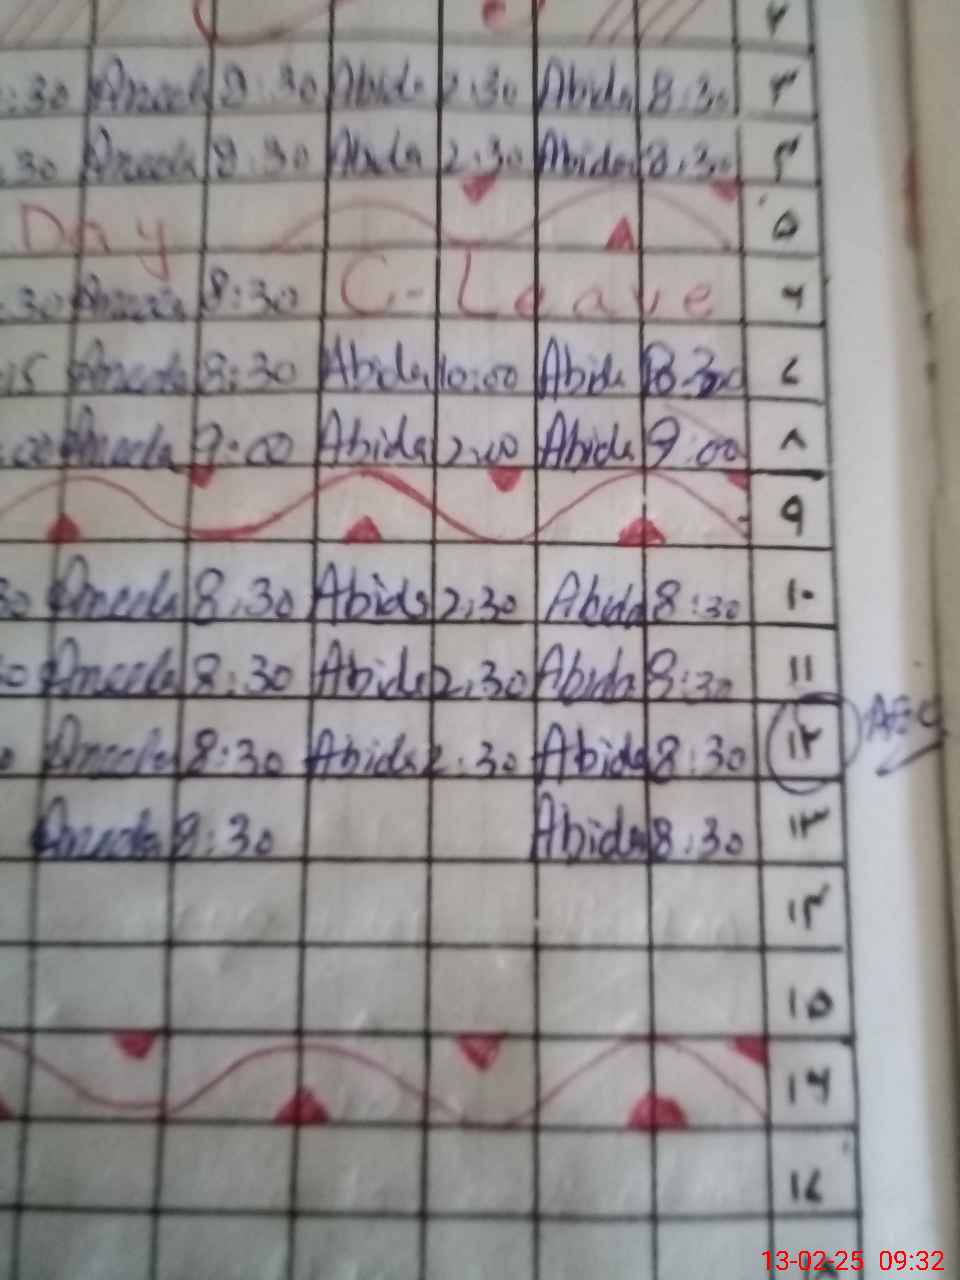 :30 Aneela 8:30 Abida 2:30 Abida 8:30 ۳
:30 Aneela 8:30 Abida 2:30 Abida 8:30 ۴
Day ۵
:30 Aneela 8:30 C-Leave ۶
:15 Aneela 8:30 Abida 10:00 Abida 8:30 ۷
:00 Aneela 9:00 Abida 2:00 Abida 9:00 ۸
۹
30 Aneela 8:30 Abida 2:30 Abida 8:30 ۱۰
0 Aneela 8:30 Abida 2:30 Abida 8:30 ۱۱
0 Aneela 8:30 Abida 2:30 Abida 8:30 ۱۲
Aneela 8:30 Abida 8:30 ۱۳
۱۴
۱۵
۱۶
۱۷
13-02-25 09:32